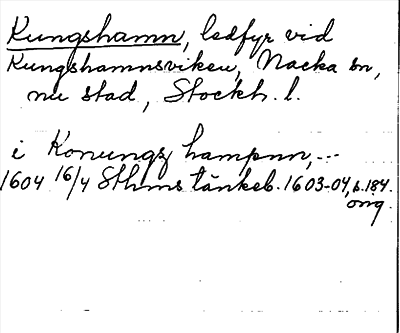 Kungshamn, ledfyr vid
Kungshamnsviken, Nacka sn,
nu stad, Stockh. l.
i Konungz hampnn, ...
1604 16/4 Sthms tänkeb. 1603-04, s. 184.
orig.